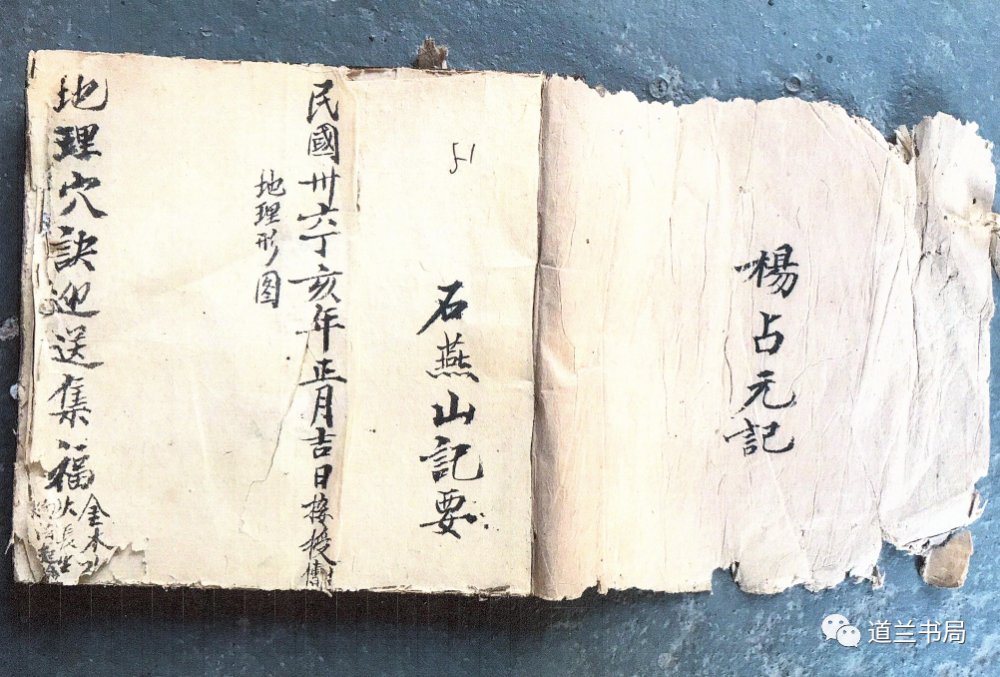 楊占元記
51
石燕山記要
民國卅六丁亥年正月吉日接授傳
地理形图
地理穴訣迎送集福
金木
道兰书局